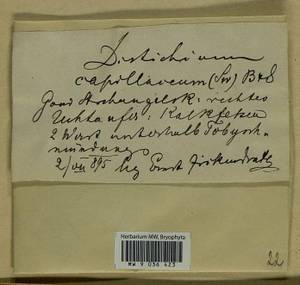 Distichium
capillaceum (Sw) B&S
Gouv Archangelsk: rechtes
Uchtaufer: Kalkfelsen
2 Werst unterhalb Tobysch-
mündung
2/VII 895 leg Ernst
Herbarium MW, Bryophyta
MW 9 036 423
22